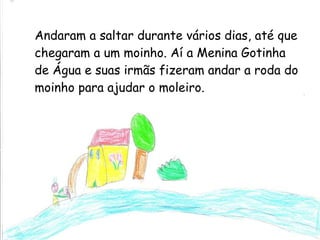 Andaram a saltar durante vários dias, até que
chegaram a um moinho. Aí a Menina Gotinha
de Água e suas irmãs fizeram andar a roda do
moinho para ajudar o moleiro.